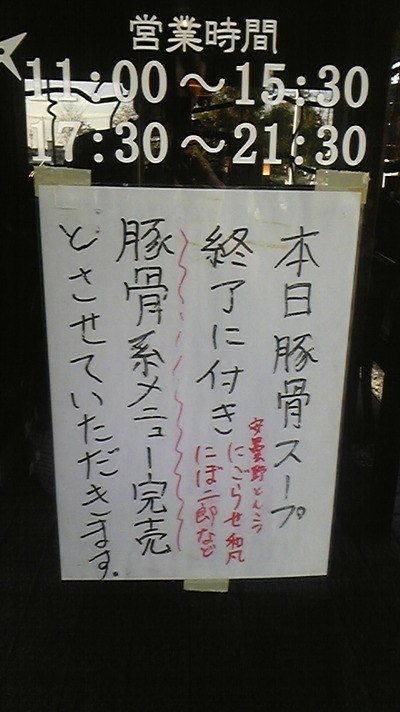 営業時間
11:00～15:30
17:30～21:30
本日豚骨スープ
終了に付き
安曇野とんこつ
にごらせ和風
にぼ二郎など
豚骨系メニュー完売
とさせていただきます.